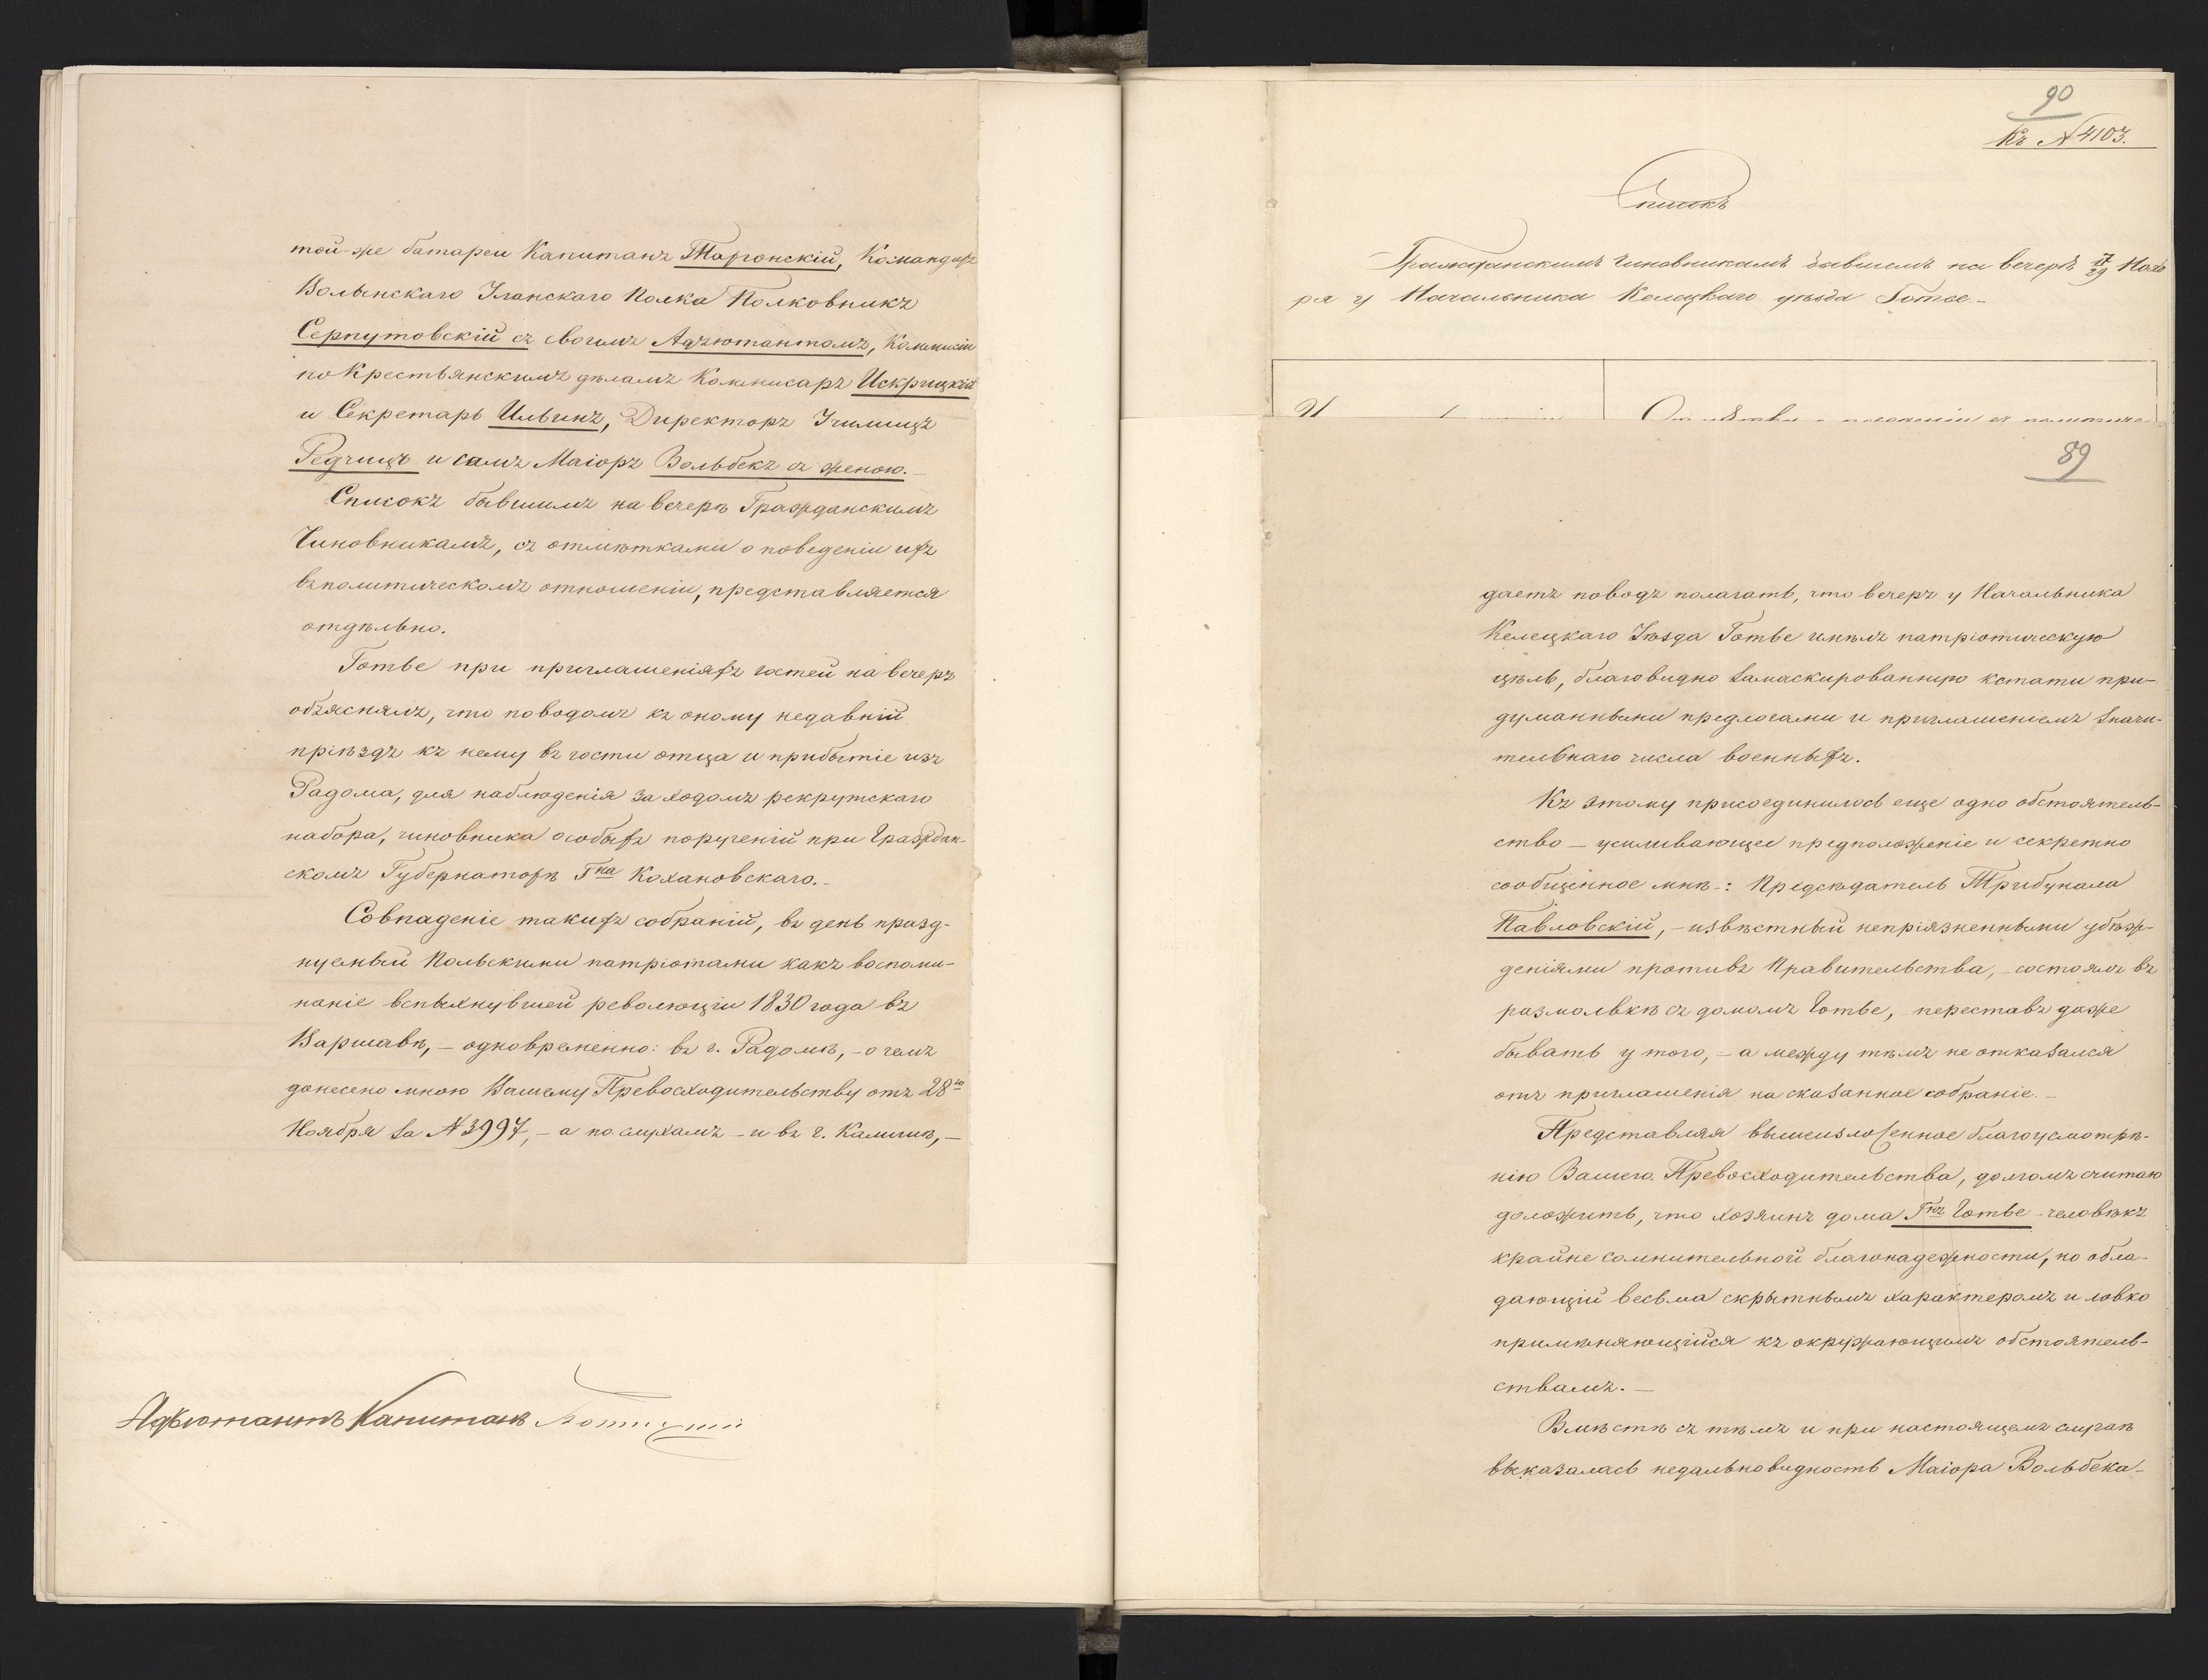 той-же батареи Капитанъ Таронскій, Командиръ
Волынскаго Уланскаго Полка Полковникъ
Серпутовскій съ своимъ Адъютантомъ, Комисіи
по Крестьянскимъ дѣламъ Комисаръ Искрицкій
и Секретарь Ильинъ, Директоръ Училищъ
Редчицъ и самъ Маіоръ Вольбекъ съ женою.–
Списокъ бывшимъ на вечерѣ Гражданскимъ
Чиновникамъ, съ отмѣтками о поведеніи ихъ
въ политическомъ отношеніи, представляется
отдѣльно.
Готве при приглашеніяхъ гостей на вечеръ
объяснялъ, что поводомъ къ оному недавній
пріѣздъ къ нему въ гости отца и прибытіе изъ
Радома, для наблюденія за ходомъ рекрутскаго
набора, чиновника особыхъ порученій при Граждан-
скомъ Губернаторѣ Гна Кохановскаго.–
Совпаденіе такихъ собраній, въ день празд-
нуемый Польскими патріотами какъ воспоми-
наніе вспыхнувшей революціи 1830 года въ
Варшавѣ, – одновременно: въ г. Радомѣ, – о чемъ
донесено мною Вашему Превосходительству отъ 28го
Ноября за № 3997, – а по слухамъ – и въ г. Калишѣ, –
Адъютантъ Капитанъ
90
Къ № 4103.
Списокъ
Гражданскимъ чиновникамъ бывшемъ на вечерѣ 17/29 Нояб
ря у Начальника Келецкаго уѣзда Готве –
89
даетъ поводъ полагать, что вечеръ у Начальника
Келецкаго Уѣзда Готве имѣлъ патріотическую
цѣль, благовидно замаскированную кстати при-
думанными предлогами и приглашеніемъ значи-
тельнаго числа военныхъ.
Къ этому присоединилось еще одно обстоятель-
ство – усиливающее предположеніе и секретно
сообщенное мнѣ –: Предсѣдатель Трибунала
Павловскій, – извѣстный непріязненными убѣж-
деніями противъ Правительства, – состоялъ въ
размолвкѣ съ домомъ Готве, – переставъ даже
бывать у того, – а между тѣмъ не отказался
отъ приглашенія на сказанное собраніе. –
Представляя вышеизложенное благоусмотрѣ-
нію Вашего Превосходительства, долгомъ считаю
доложить, что хозяинъ дома Гнъ Готве – человѣкъ
крайне сомнительной благонадежности, но обла-
дающій весьма скрытнымъ характеромъ и ловко
примѣняющійся къ окружающимъ обстоятель-
ствамъ. –
Вмѣстѣ съ тѣмъ и при настоящемъ случаѣ
высказалась недальновидность Маіора Вольбека –